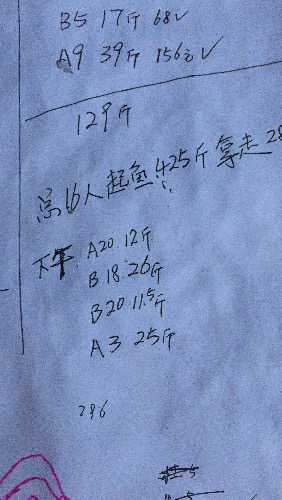 B5 17斤 68✓
A9 39斤 156元✓
129斤
总16人起鱼425斤拿走28
下午 A20 12斤
B18 26斤
B20 11.5斤
A3 25斤
296